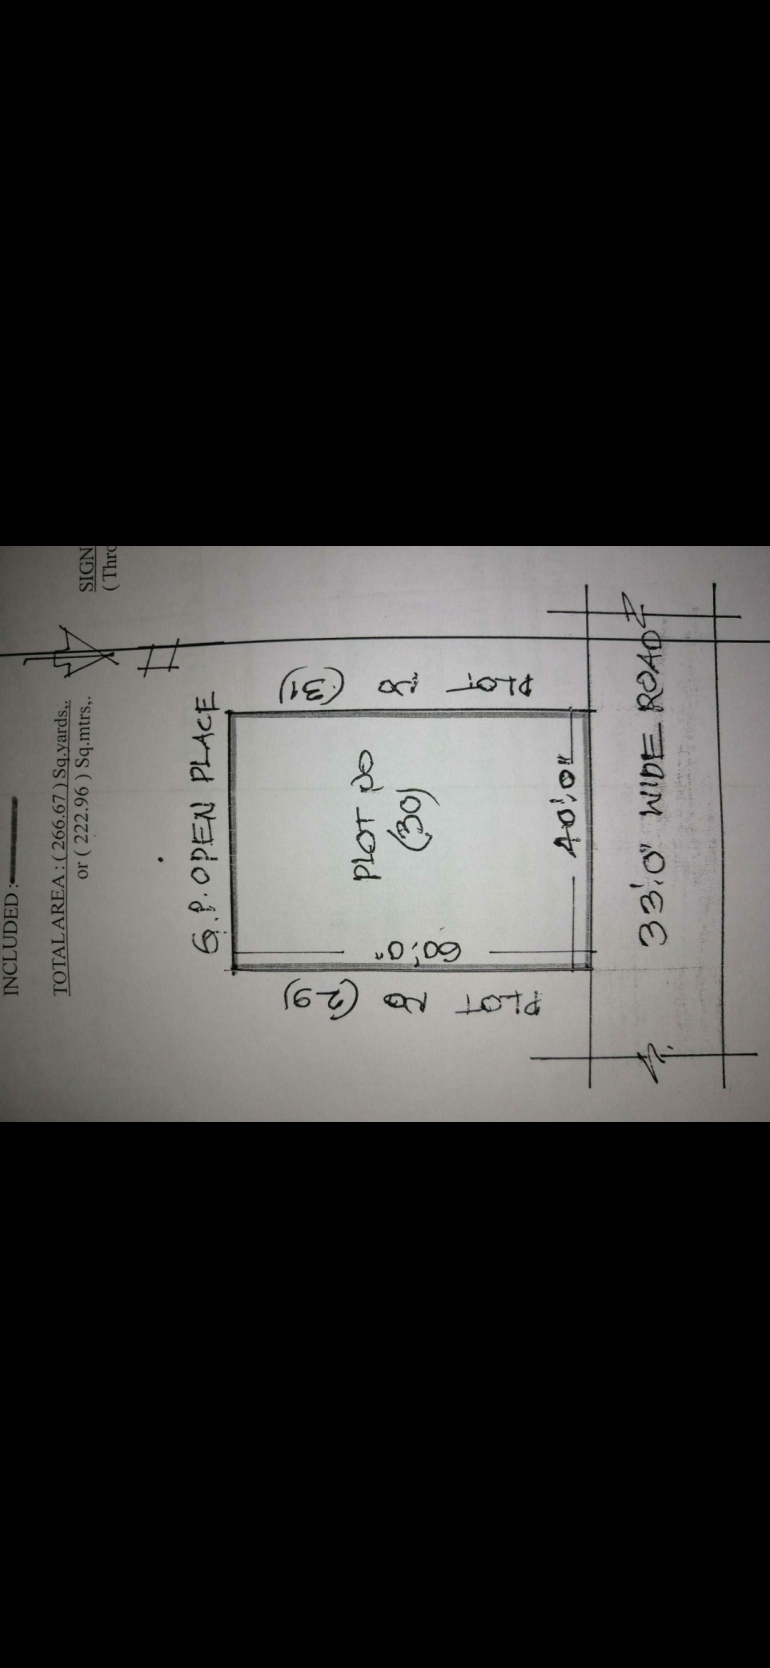 INCLUDED :-
TOTAL AREA : ( 266.67 ) Sq.yards.,
or ( 222.96 ) Sq.mtrs,.
SIGN
( Thro
G.P. OPEN PLACE
PLOT NO (31)
PLOT NO
(30)
60'.0"
40'.0"
PLOT NO (29)
33'.0" WIDE ROAD